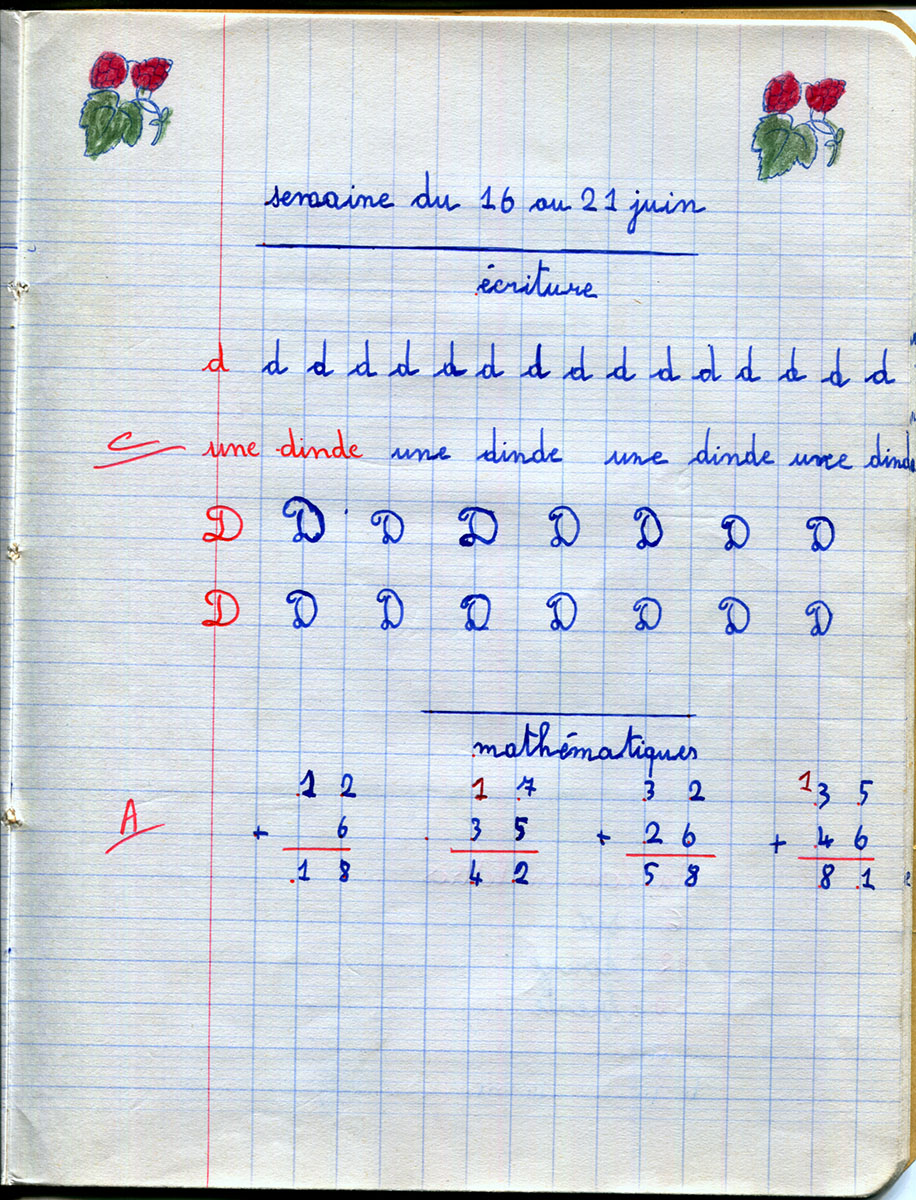 semaine du 16 au 21 juin
écriture
d d d d d d d d d d d d d d d d
C une dinde une dinde une dinde une dinde
D D D D D D D D
D D D D D D D D
mathématiques
1 2 1 7 3 2 1 3 5
A + 6 3 5 + 2 6 + 4 6
1 8 4 2 5 8 8 1